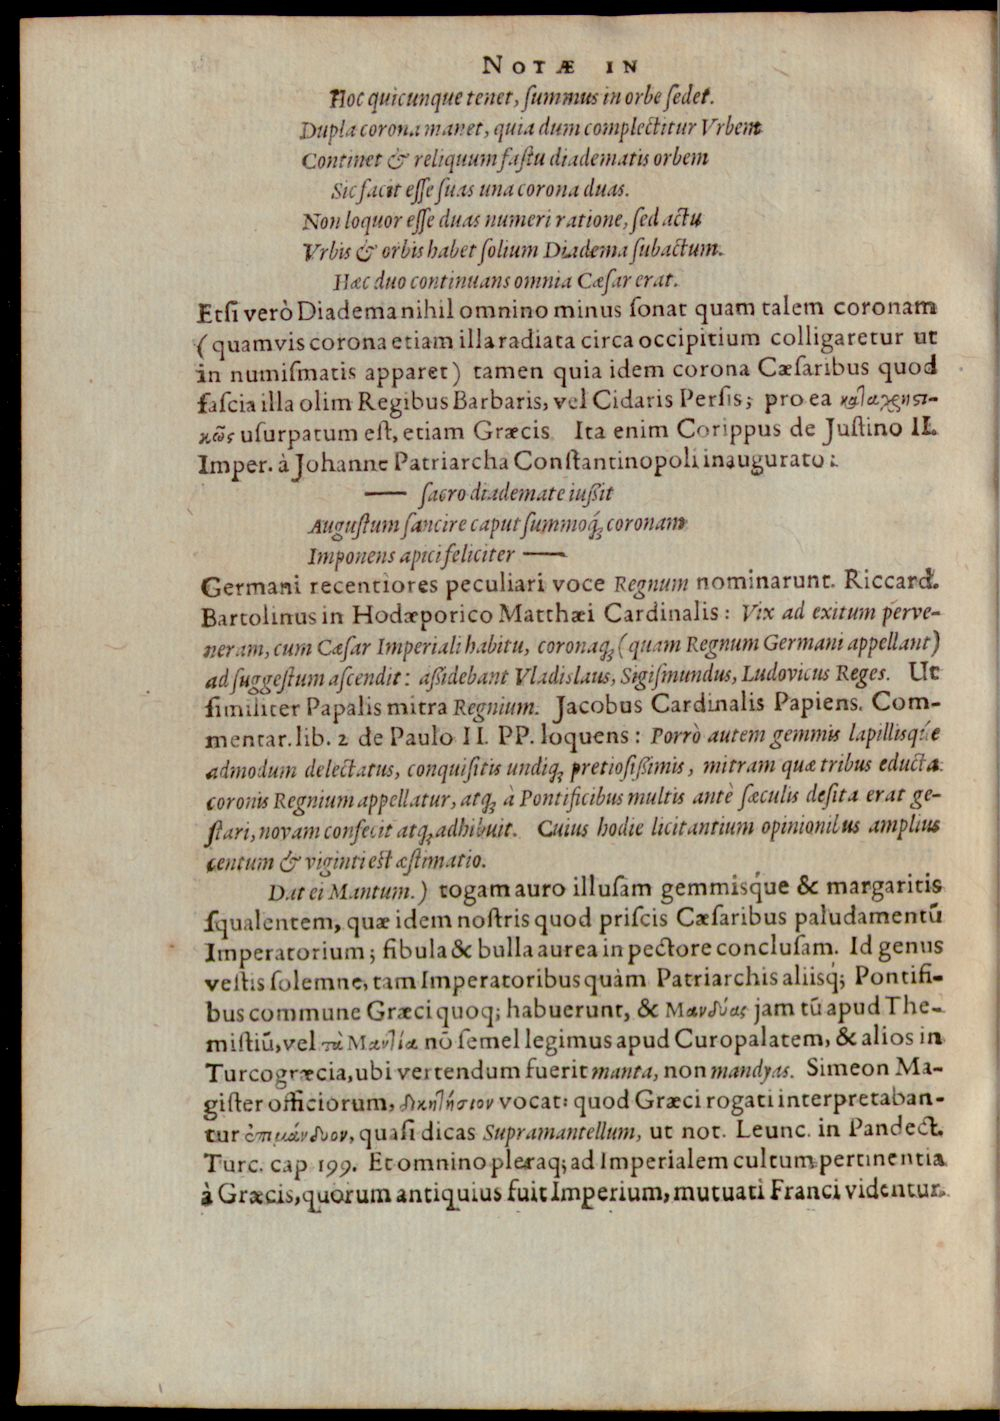 NOTÆ IN
Hoc quicunque tenet, ſummus in orbe ſedet.
Dupla corona manet, quia dum complectitur Vrbem
Continet & reliquum faſtu diadematis orbem
Sic facit eſſe ſuas una corona duas.
Non loquor eſſe duas numeri ratione, ſed actu
Vrbis & orbis habet ſolium Diadema ſubactum.
Hæc duo continuans omnia Cæſar erat.
Etſi verò Diadema nihil omnino minus ſonat quam talem coronam
(quamvis corona etiam illa radiata circa occipitium colligaretur ut
in numiſmatis apparet) tamen quia idem corona Cæſaribus quod
faſcia illa olim Regibus Barbaris, vel Cidaris Perſis; pro ea καταχρηςι-
κῶς uſurpatum eſt, etiam Græcis Ita enim Corippus de Juſtino II.
Imper. à Johanne Patriarcha Conſtantinopoli inaugurato:
— ſacro diademate iußit
Auguſtum ſancire caput ſummoq́ꝫ coronam
Imponens apici feliciter —
Germani recentiores peculiari voce Regnum nominarunt. Riccard.
Bartolinus in Hodæporico Matthæi Cardinalis: Vix ad exitum perve-
neram, cum Cæſar Imperiali habitu, coronaqꝫ (quam Regnum Germani appellant)
ad ſuggeſtum aſcendit: aßidebant Vladislaus, Sigiſmundus, Ludovicus Reges. Ut
ſimiliter Papalis mitra Regnium. Jacobus Cardinalis Papiens. Com-
mentar. lib. 2 de Paulo II. PP. loquens: Porrò autem gemmis lapillisq́ue
admodum delectatus, conquiſitis undiqꝫ pretioſißimis, mitram quæ tribus educta
coronis Regnium appellatur, atqꝫ à Pontificibus multis antè ſæculis deſita erat ge-
ſtari, novam confecit atqꝫ adhibuit. Cuius hodie licitantium opinionibus amplius
centum & viginti est æſtimatio.
Dat ei Mantum.) togam auro illuſam gemmisq́ue & margaritis
ſqualentem, quæ idem noſtris quod priſcis Cæſaribus paludamentū
Imperatorium; fibula & bulla aurea in pectore concluſam. Id genus
veſtis ſolemne, tam Imperatoribus quàm Patriarchis aliisq́; Pontifi-
bus commune Græci quoq; habuerunt, & Μανδύας jam tū apud The-
miſtiū, vel τὰ Μαντία nō ſemel legimus apud Curopalatem, & alios in
Turcogræcia, ubi vertendum fuerit manta, non mandyas. Simeon Ma-
giſter officiorum, vocat: quod Græci rogati interpretaban-
tur ἐπιμάνδυον, quaſi dicas Supramantellum, ut not. Leunc. in Pandect.
Turc. cap 199. Et omnino pleraq; ad Imperialem cultum pertinentia
à Græcis, quorum antiquius fuit Imperium, mutuati Franci videntur.